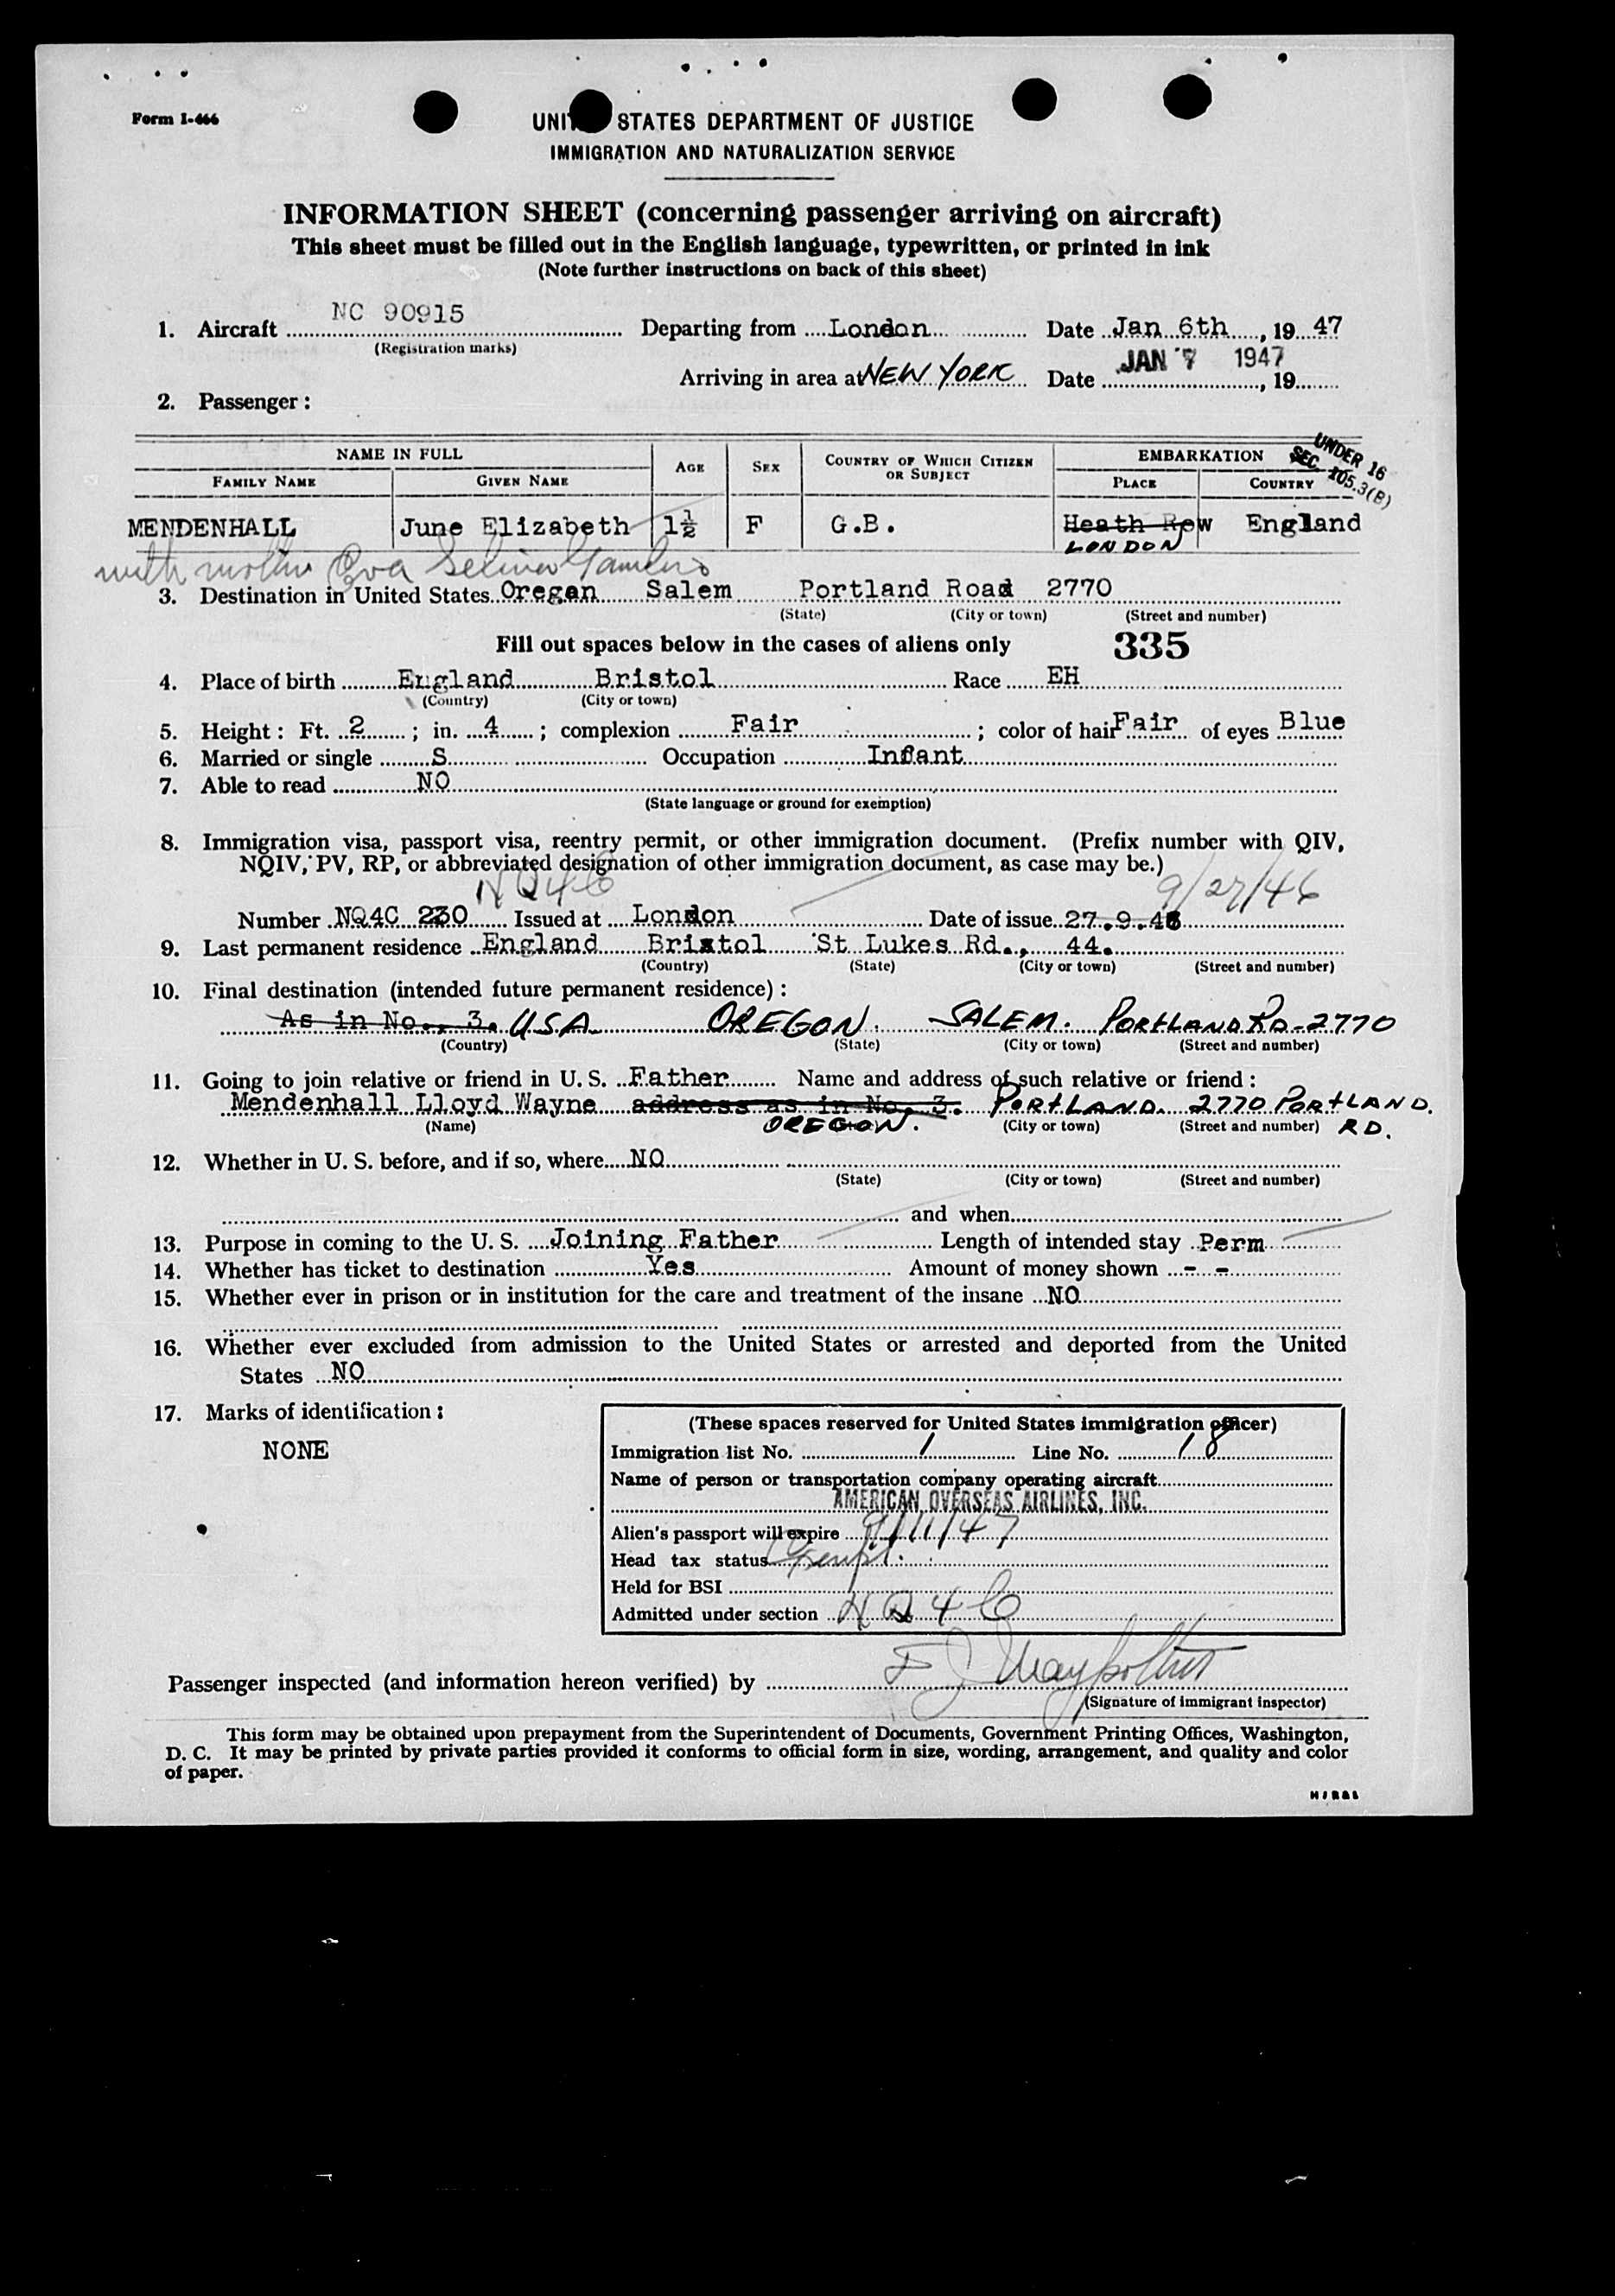 Form I-466
UNI STATES DEPARTMENT OF JUSTICE
IMMIGRATION AND NATURALIZATION SERVICE
INFORMATION SHEET (concerning passenger arriving on aircraft)
This sheet must be filled out in the English language, typewritten, or printed in ink
(Note further instructions on back of this sheet)
1. Aircraft NC 90915 Departing from London Date Jan 6th, 19 47
(Registration marks)
Arriving in area at NEW YORK Date JAN 7 1947, 19
2. Passenger:
NAME IN FULL AGE SEX COUNTRY OF WHICH CITIZEN OR SUBJECT EMBARKATION UNDER 16 SEC. 105.3(B)
FAMILY NAME GIVEN NAME PLACE COUNTRY
MENDENHALL June Elizabeth 1½ F G.B. Heath Row England
LONDON
with mother Eva Selina
3. Destination in United States Oregan Salem Portland Road 2770
(State) (City or town) (Street and number)
Fill out spaces below in the cases of aliens only 335
4. Place of birth England Bristol Race EH
(Country) (City or town)
5. Height: Ft. 2; in. 4; complexion Fair; color of hair Fair of eyes Blue
6. Married or single S Occupation Infant
7. Able to read NO
(State language or ground for exemption)
8. Immigration visa, passport visa, reentry permit, or other immigration document. (Prefix number with QIV,
NQIV, PV, RP, or abbreviated designation of other immigration document, as case may be.)
NQ4C 9/27/46
Number NQ4C 230 Issued at London Date of issue 27.9.46
9. Last permanent residence England Bristol St Lukes Rd., 44.
(Country) (State) (City or town) (Street and number)
10. Final destination (intended future permanent residence):
As in No. 3. U.S.A. OREGON. SALEM. PORTLAND RD-2770
(Country) (State) (City or town) (Street and number)
11. Going to join relative or friend in U. S. Father Name and address of such relative or friend:
Mendenhall Lloyd Wayne address as in No. 3. PORTLAND. 2770 PORTLAND.
(Name) OREGON. (City or town) (Street and number) RD.
12. Whether in U. S. before, and if so, where NO
(State) (City or town) (Street and number)
and when
13. Purpose in coming to the U. S. Joining Father Length of intended stay Perm
14. Whether has ticket to destination Yes Amount of money shown - -
15. Whether ever in prison or in institution for the care and treatment of the insane NO
16. Whether ever excluded from admission to the United States or arrested and deported from the United
States NO
17. Marks of identification:
NONE
(These spaces reserved for United States immigration officer)
Immigration list No. 1 Line No. 18
Name of person or transportation company operating aircraft
AMERICAN OVERSEAS AIRLINES, INC.
Alien's passport will expire 9/11/47
Head tax status Exempt.
Held for BSI
Admitted under section NQ4C
Passenger inspected (and information hereon verified) by
(Signature of immigrant inspector)
This form may be obtained upon prepayment from the Superintendent of Documents, Government Printing Offices, Washington,
D. C. It may be printed by private parties provided it conforms to official form in size, wording, arrangement, and quality and color
of paper.